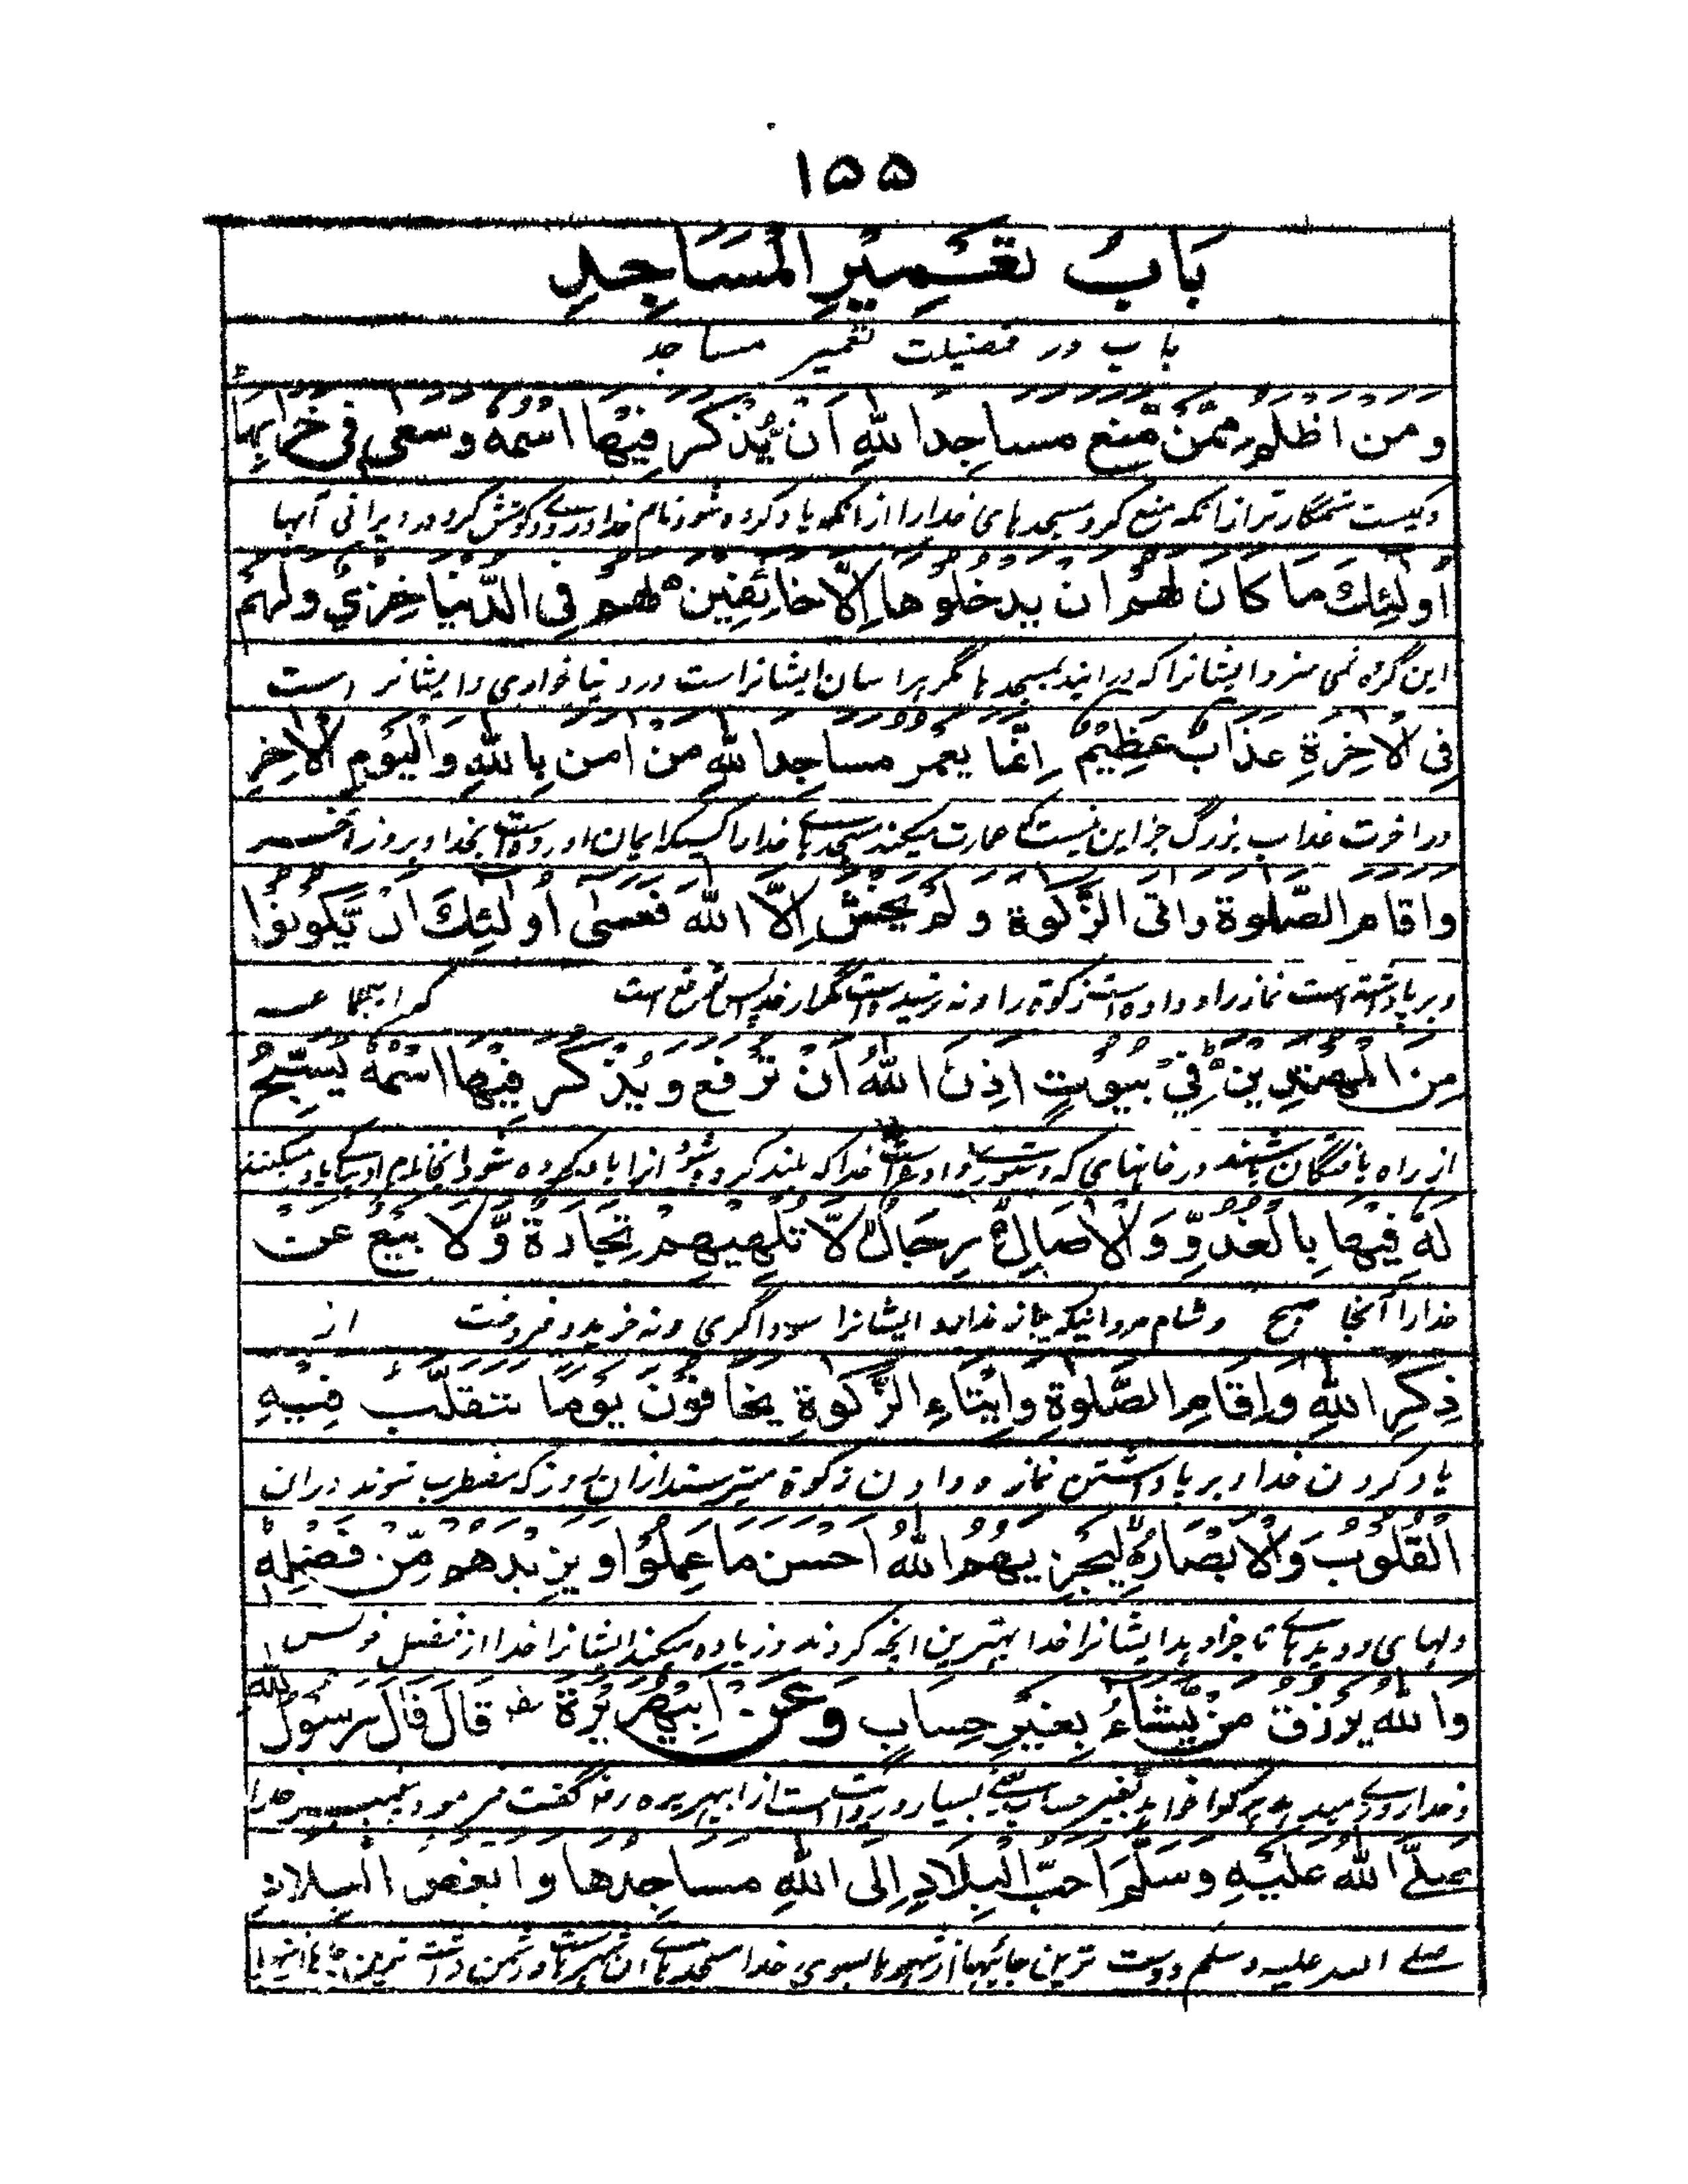 ١٥٥
بَابُ تَعْمِيْرِ الْمَسَاجِدِ
باب در فضیلت تعمیر مساجد
ومن اظلم ممّن مّنع مساجد اللهِ ان یُّذکر فِیْها اسمه وسعی فی خرابِها
وکیست ستمگارتر ازانکه منع کرد مسجدهای خدا را ازانکه یاد کرده شود نام خدا در وے وکوشش کرد در ویرانی آنها
اُولٰئِكَ مَا كَانَ لهُم ان یدخلُوها اِلّا خائِفِین لهُم فِی الدّنیا خِزیٌ ولهُم
این گروه نمی سزد ایشانرا که درایند بمسجدها مگر هراسان ایشانراست در دنیا خواری وایشانراست
فِی الْاٰخِرَةِ عَذَابٌ عَظِیْمٌ اِنَّمَا یعمر مساجِد اللهِ مَنْ اٰمن بِاللهِ وَالْیَوْمِ الْاٰخِرِ
در اخرت عذاب بزرگ جز این نیست که عمارت میکند مسجدهاے خدا را کسیکه ایمان اورده است بخدا وبروز آخر
واقام الصّلٰوة واٰتی الزّكٰوة ولَم یخش اِلّا الله فعسٰی اُولٰئِكَ اَنْ یَّكُوْنُوْا
وبرپا داشته است نماز را وداده است زکوة را ونه ترسیده است مگر از خدا پس توقع است که اینجماعه
مِنَ الْمُهْتَدِیْنَ فِیْ بُیُوْتٍ اَذِنَ اللهُ اَنْ تُرْفع ویُذْکر فِیْهَا اسْمُهٗ یُسَبِّحُ
از راه یافتگان باشند در خانهای که دستورے داده است خدا که بلند کرده شود انرا یاد کرده شود انجا نام او بپاکے یاد میکنند
لَهٗ فِیْهَا بِالْغُدُوِّ وَالْاٰصَالِ رِجَالٌ لَّا تُلْهِیْهِمْ تِجَارَةٌ وَّلَا بَیْعٌ عَنْ
خدا را آنجا صبح وشام مردانیکه باز ندارد ایشانرا سوداگری ونه خرید وفروخت از
ذِكْرِ اللهِ وَاِقَامِ الصَّلٰوةِ وَاِیْتَاءِ الزَّكٰوةِ یَخَافُوْنَ یَوْمًا تتقلّبُ فِیْهِ
یاد کردن خدا وبرپا داشتن نماز ودادن زکوة میترسند ازان روز که مضطرب شوند دران
الْقُلُوْبُ وَالْاَبْصَارُ لِیَجْزِیَهُمُ اللهُ اَحْسَنَ مَا عَمِلُوْا ویزیدهم مِّنْ فَضْلِهٖ
دلهای ودیدهاے تا جزا دهد ایشانرا خدا بهترین انچه کردند وزیاده میکند ایشانرا خدا از فضل خویش
وَاللهُ یَرْزُقُ مَنْ یَّشَاءُ بِغَیْرِ حِسَابٍ وَعَنْ اَبِیْ هُرَیْرَةَ رض قَالَ قَالَ رَسُوْلُ الله
وخدا روزے میدهد هر کرا خواهد بغیر حساب یعنے بسیار وروایت است از ابی هریره رض گفت فرمود پیغمبر خدا
صَلَّی اللهُ عَلَیْهِ وَسَلَّمَ اَحَبُّ الْبِلَادِ اِلَی اللهِ مساجِدها وابغض البِلادِ
صلے الله علیه وسلم دوست ترین جائیها از شهرها بسوی خدا مسجدهاے ان شهرهاست ودشمن داشته ترین